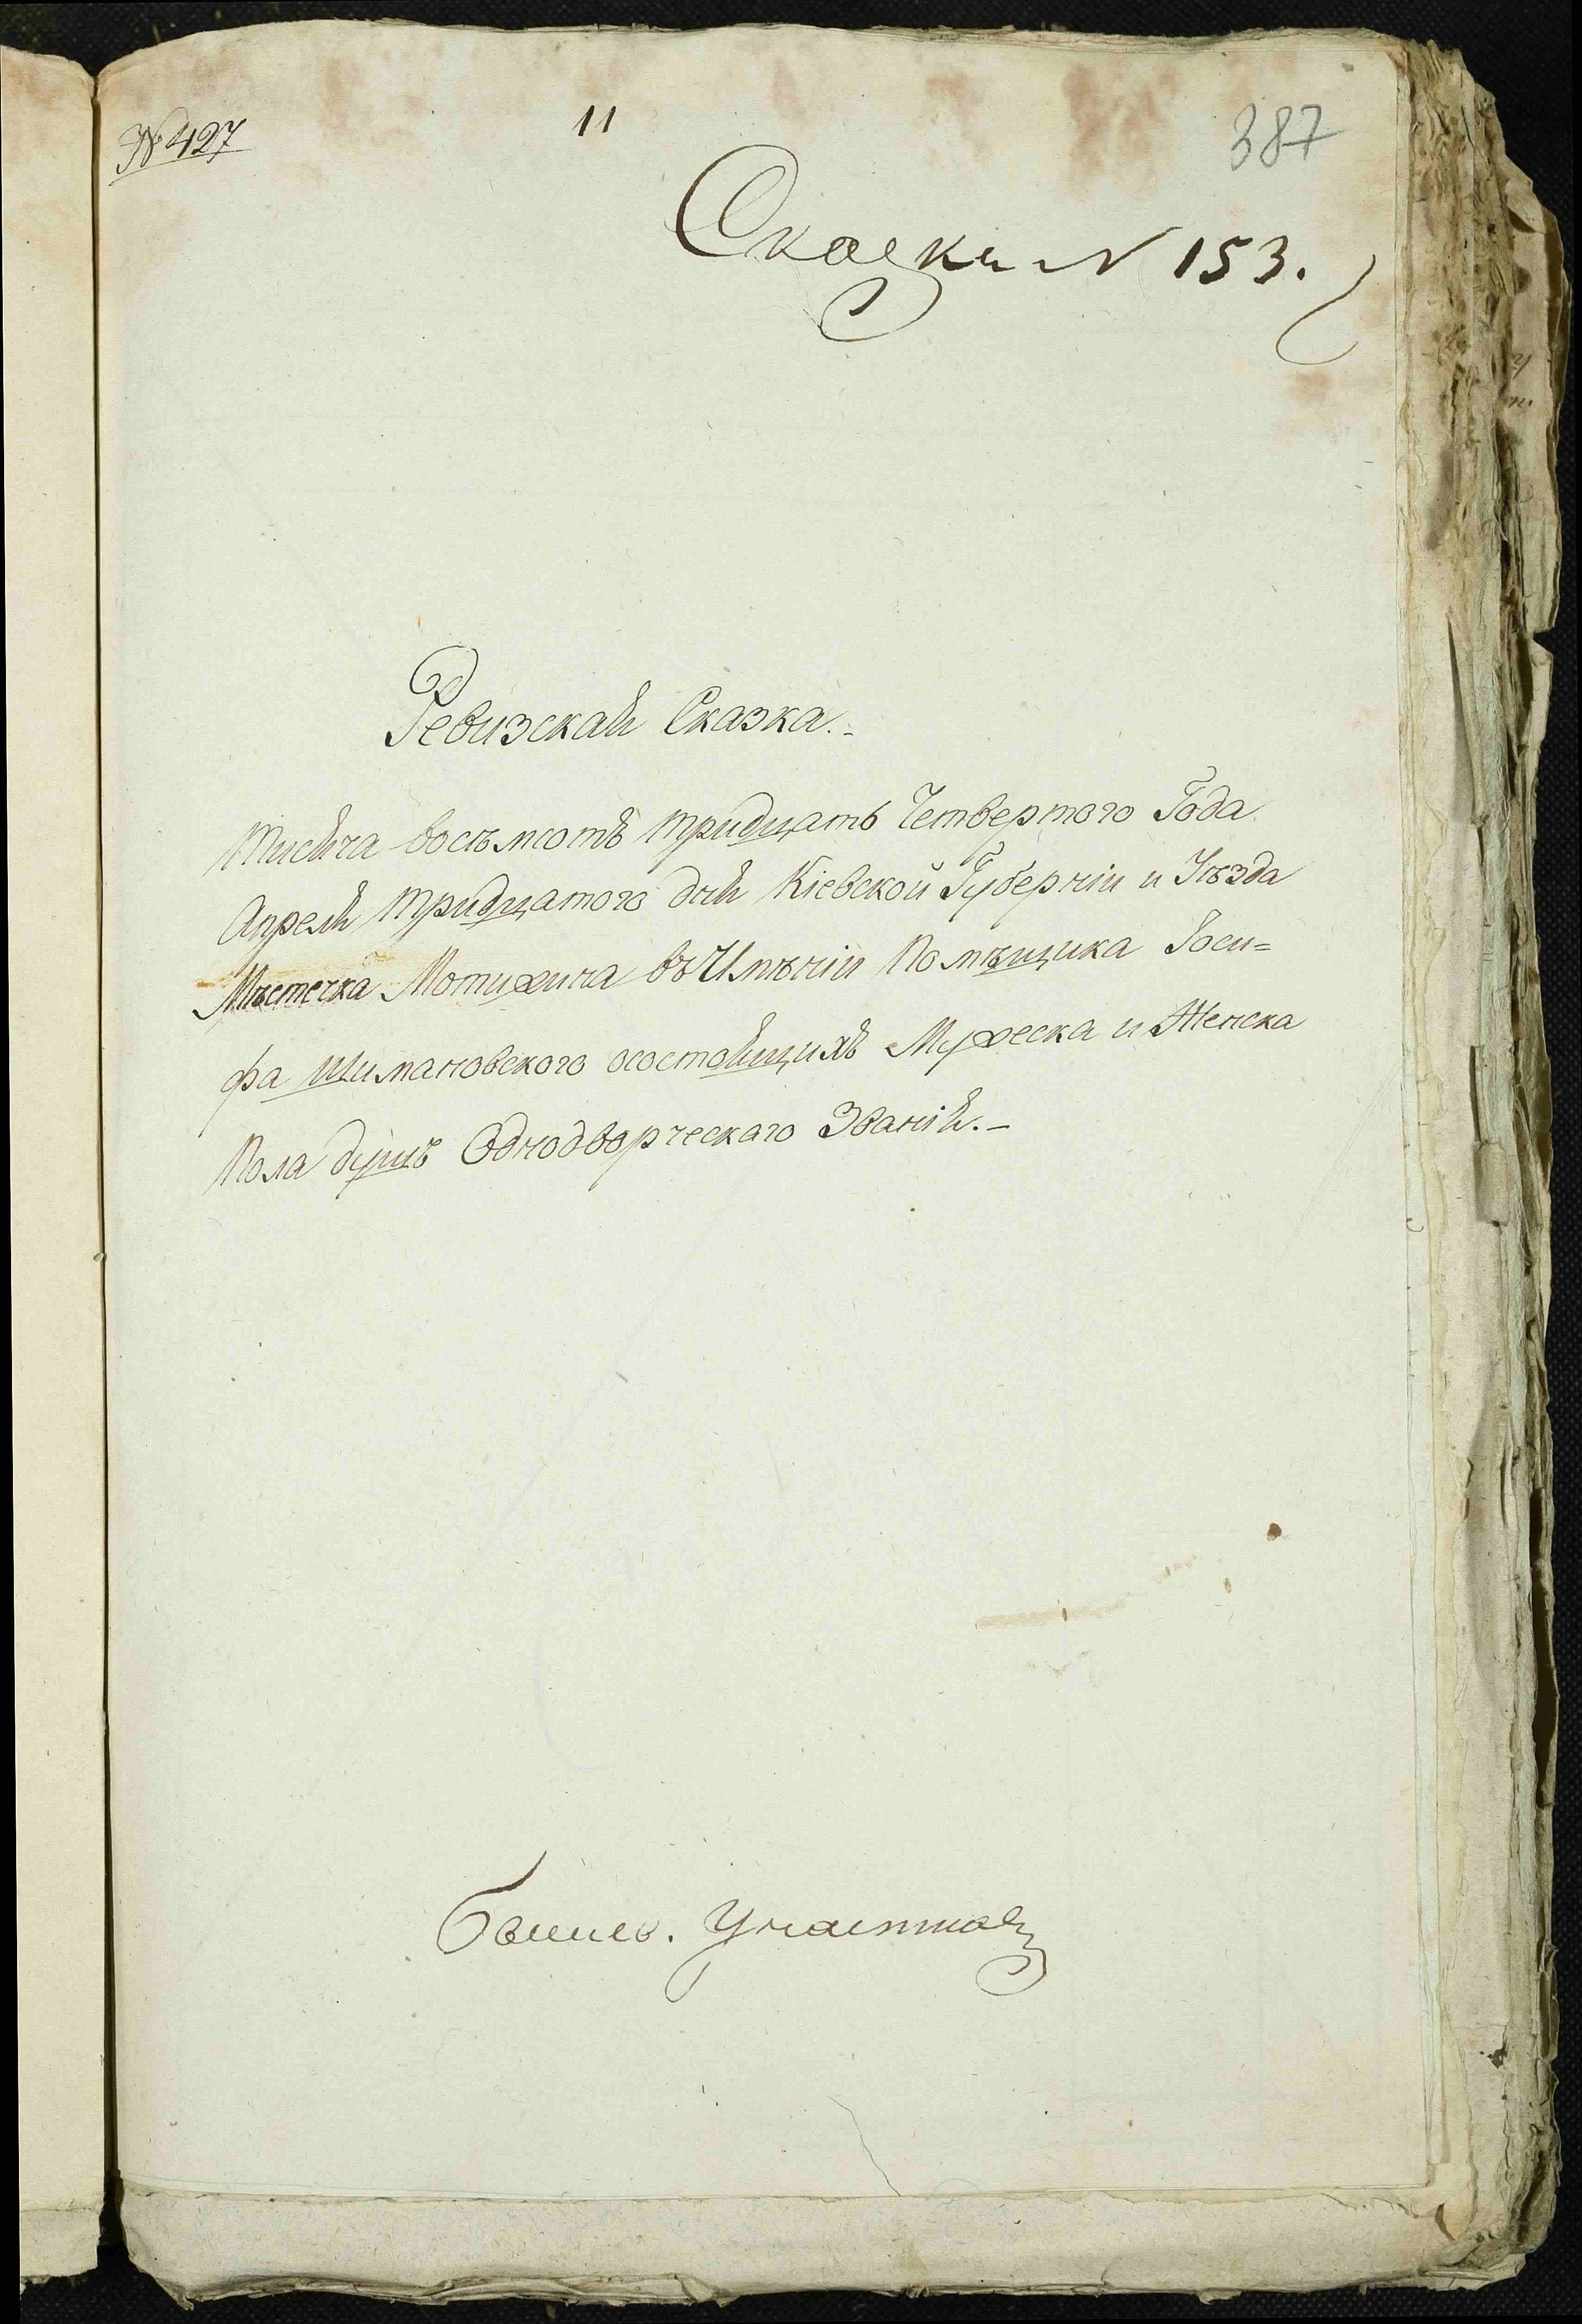 № 427
11
387
Сказка N 153.
Ревизская Сказка.
Тисяча восъмсотъ тридцать Четвертого Года
Апреля тридцатого дня Кіевской Губерніи и Уѣзда
Мѣстечка Мотижина въ Имѣніи Помѣщика Іоси=
фа Шимановского состоящихъ Мужеска и Женска
Пола душъ Однодворческаго Званія.